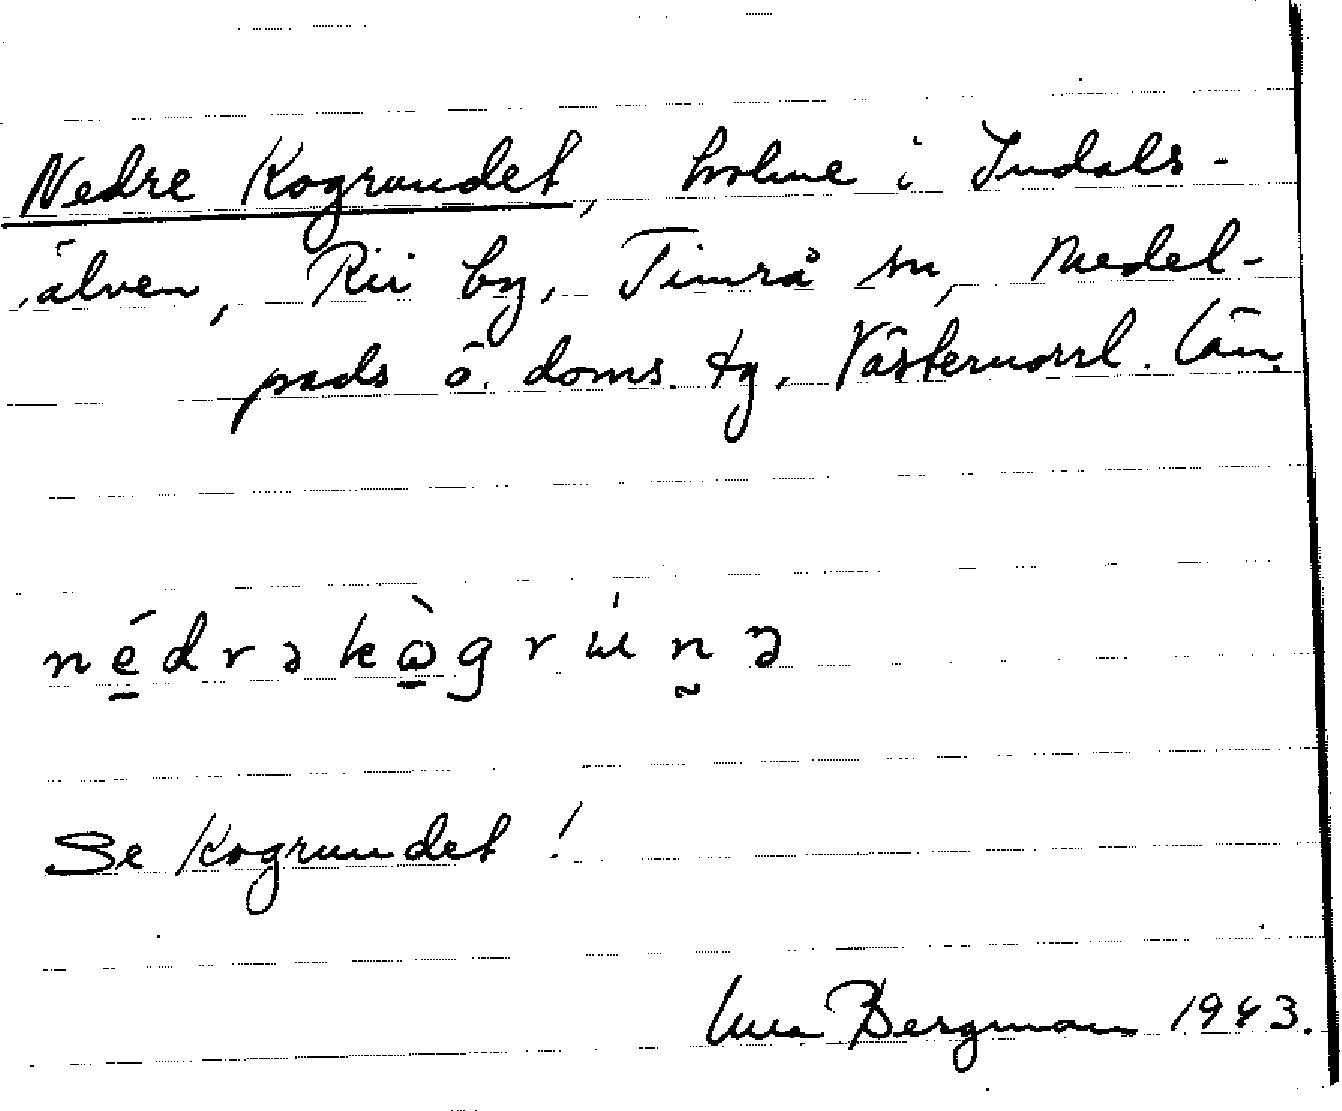 Nedre Kogrundet, holme i Indals-
älven, Rii by, Timrå sn, Medel-
pads ö. doms. tg, Västernorrl. län.
né̱drəkɷ̱̀grɯ́n̰ə
Se Kogrundet!
Bergman 1943.